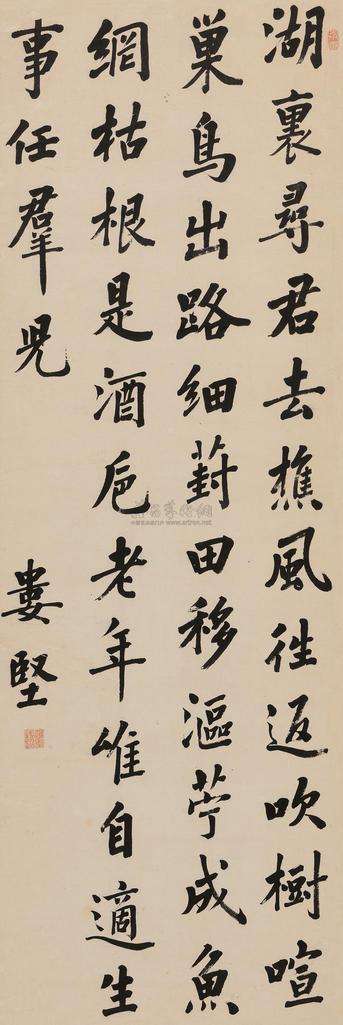 湖裏尋君去樵風徃返吹樹喧
巢鳥出路細葑田移漚苧成魚
網枯根是酒卮老年唯自適生
事任羣兒
婁堅
www.artron.net